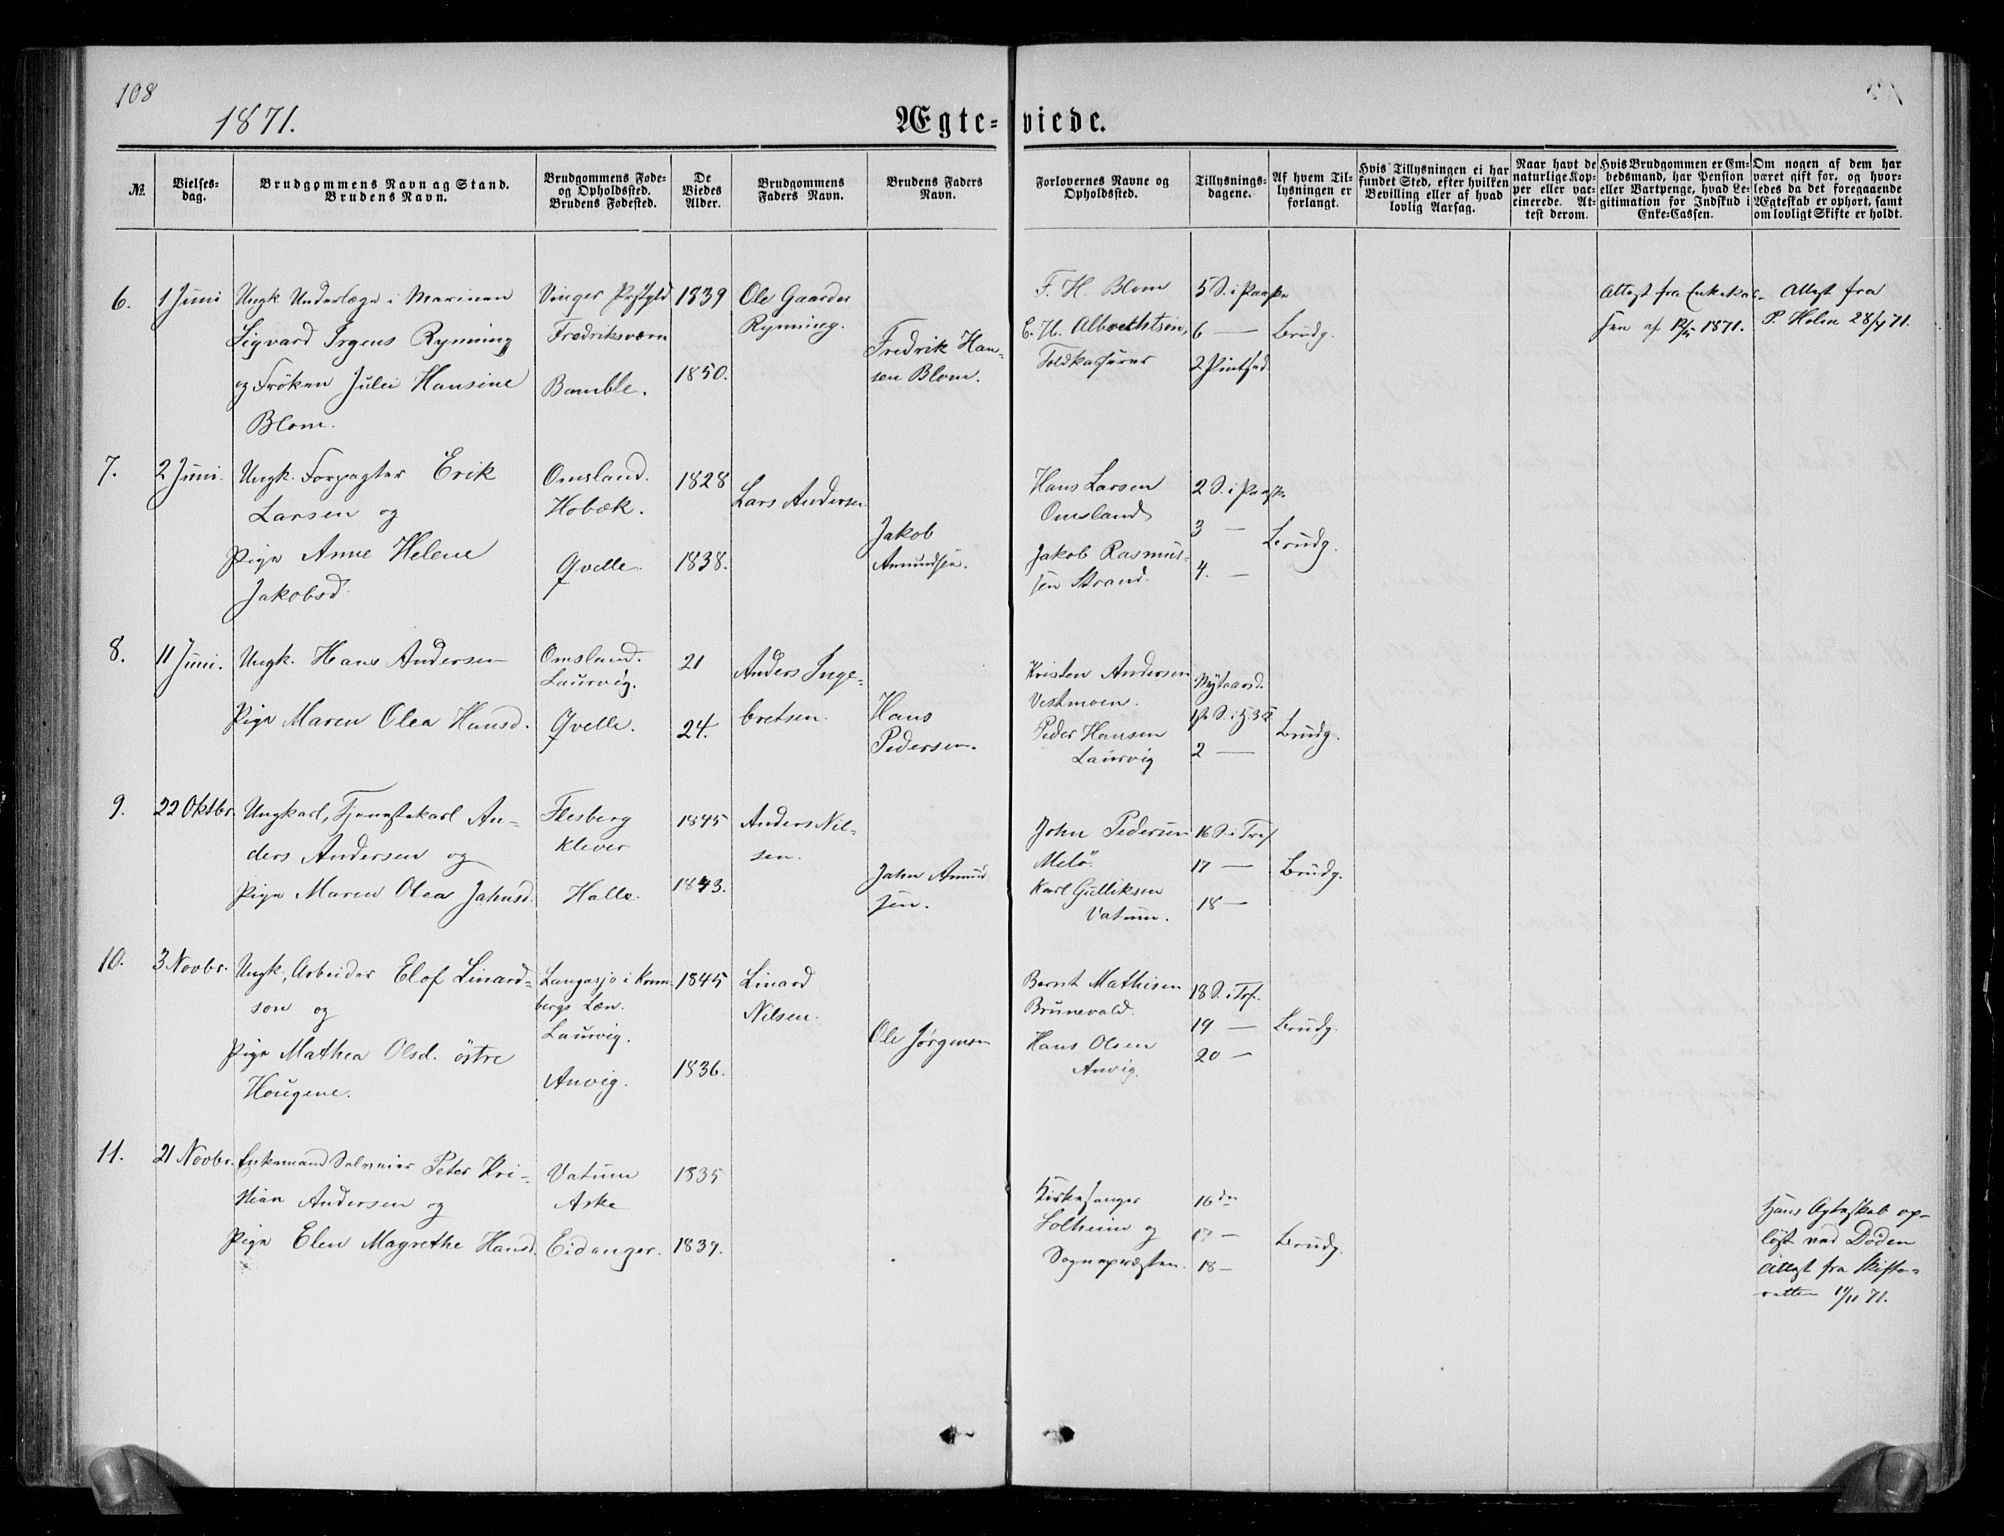 108
1871.
Ægte-viede.
№.
Vielses-
dag.
Brudgommens Navn og Stand.
Brudens Navn.
Brudgommens Føde-
og Opholdssted.
Brudens Fødested.
De
Viedes
Alder.
Brudgommens
Faders Navn.
Brudens Faders
Navn.
Forlovernes Navne og
Opholdssted.
Tillysnings-
dagene.
Af hvem Til-
lysningen er
forlangt.
Hvis Tillysningen ei har
fundet Sted, efter hvilken
Bevilling eller af hvad
lovlig Aarsag.
Naar havt de
naturlige Kop-
per eller vac-
cinerede. At-
test derom.
Hvis Brudgommen er Em-
bedsmand, har Pension
eller Vartpenge, hvad Le-
gitimation for Indskud i
Enke-Cassen.
Om nogen af dem har
været gift før, og hvor-
ledes da det foregaaende
Ægteskab er ophørt, samt
om lovligt Skifte er holdt.
6.
1 Juni
Ungk Underlæge i Marinen
Sigvard Irgens Rynning
og Frøken Julie Hansine
Blom.
Vinger Præstgjld
Fredriksværn
Bamble.
1839
1850.
Ole Gaarder
Rynning.
Fredrik Han-
sen Blom.
F. H. Blom
E. H. Albrethsen,
Toldkasserer
5 S. i Paaske
6 —
2 Pintsed.
Brudg.
Attest fra Enkekas-
sen af 12/5 1871.
Attest fra
P. Holm 28/4 71.
7.
2 Juni.
Ungk. Forpagter Erik
Larsen og
Pige Anne Helene
Jakobsd.
Omsland.
Hobæk.
Qvelle.
1828
1838.
Lars Andersen
Jakob
Amundsen.
Hans Larsen
Omsland
Jakob Rasmus-
sen Strand.
2 S. i Paaske
3 —
4. —
Brudg.
8.
11 Juni.
Ungk. Hans Andersen
Pige Maren Olea Hansd.
Omsland.
Laurvig.
Qvelle.
21
24.
Anders Inge-
bretsen.
Hans
Pedersen.
Kristen Andersen
Vestmoen.
Peder Hansen
Laurvig
Nytaarsd.
1ste S. i H. 3 K
2 —
Brudg.
9.
22 Oktbr.
Ungkarl, Tjenestekarl An-
ders Andersen og
Pige Maren Olea Jahnsd.
Flesberg
Klever
Halle.
1845
1843.
Anders Nil-
sen.
Jahn Amund
sen.
John Pedersen
Melö.
Karl Gulliksen
Vatum.
16 S. i Tref
17 —
18 —
Brudg.
10.
3 Novbr.
Ungk, Arbeider Elof Linard-
son og
Pige Mathea Olsd. östre
Hougene.
Langasjo i Kron-
bergs Læn.
Laurvig.
Anvig.
1845
1836.
Linard
Nilsen.
Ole Jørgensen
Bernt Mathisen
Brunevald.
Hans Olsen
Anvig.
18 S. i Tref.
19 —
20 —
Brudg.
11.
21 Novbr.
Enkemand Selveier Peter Kri-
stian Andersen og
Pige Elen Magrethe Hansd.
Vatum
Aske
Eidanger.
1835
1839.
Kirkesanger
Solheim og
Sognepræsten.
16 do
17 —
18 —
Brudg.
Hans Ægteskab op-
løst ved Døden
Attest fra Skifte-
retten 11/11 71.